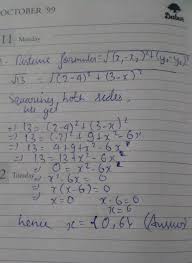 OCTOBER '99
11 Monday
Distance formula = √(x₁-x₂)²+(y₁-y₂)²
√13 = √(2-4)²+(3-x)²
Squaring both sides,
we get
⇒ 13 = (2-4)²+(3-x)²
⇒ 13 = (2)²+9+x²-6x
⇒ 13 = 4+9+x²-6x
⇒ 13 = 13+x²-6x
⇒ 0 = x²-6x
2 Tuesday ⇒ x²-6x=0
⇒ x(x-6)=0
⇒ x=0 x-6=0
x=6
hence x = {0,6} (Answer)